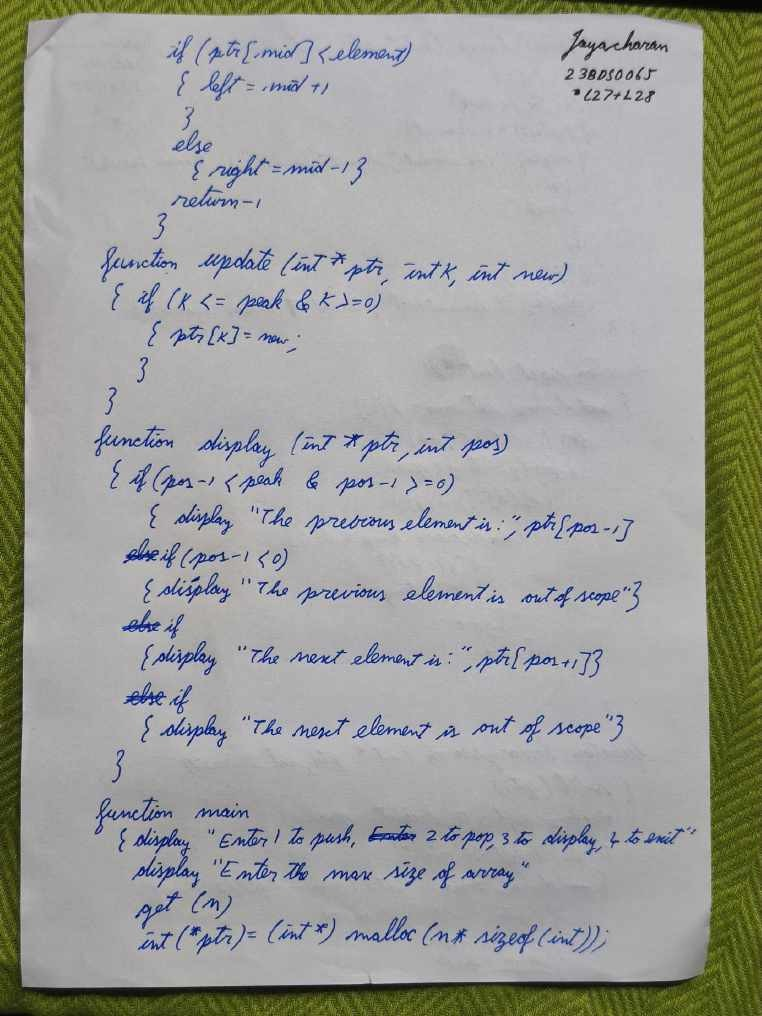 if (ptr[mid] < element)
Jayacharan
{ left = mid + 1
23BDS0065
L27+L28
}
else
{ right = mid - 1 }
return -1
}
function update (int * ptr, int K, int new)
{ if (K <= peak & K >= 0)
{ ptr[K] = new;
}
}
function display (int * ptr, int pos)
{ if (pos-1 < peak & pos-1 >= 0)
{ display "The previous element is:", ptr[pos-1]
else if (pos-1 < 0)
{ display "The previous element is out of scope"}
else if
{ display "The next element is:", ptr[pos+1]}
else if
{ display "The next element is out of scope"}
}
function main
{ display "Enter 1 to push, Enter 2 to pop, 3 to display, 4 to exit"
display "Enter the max size of array"
get (n)
int (*ptr) = (int*) malloc (n* sizeof(int));